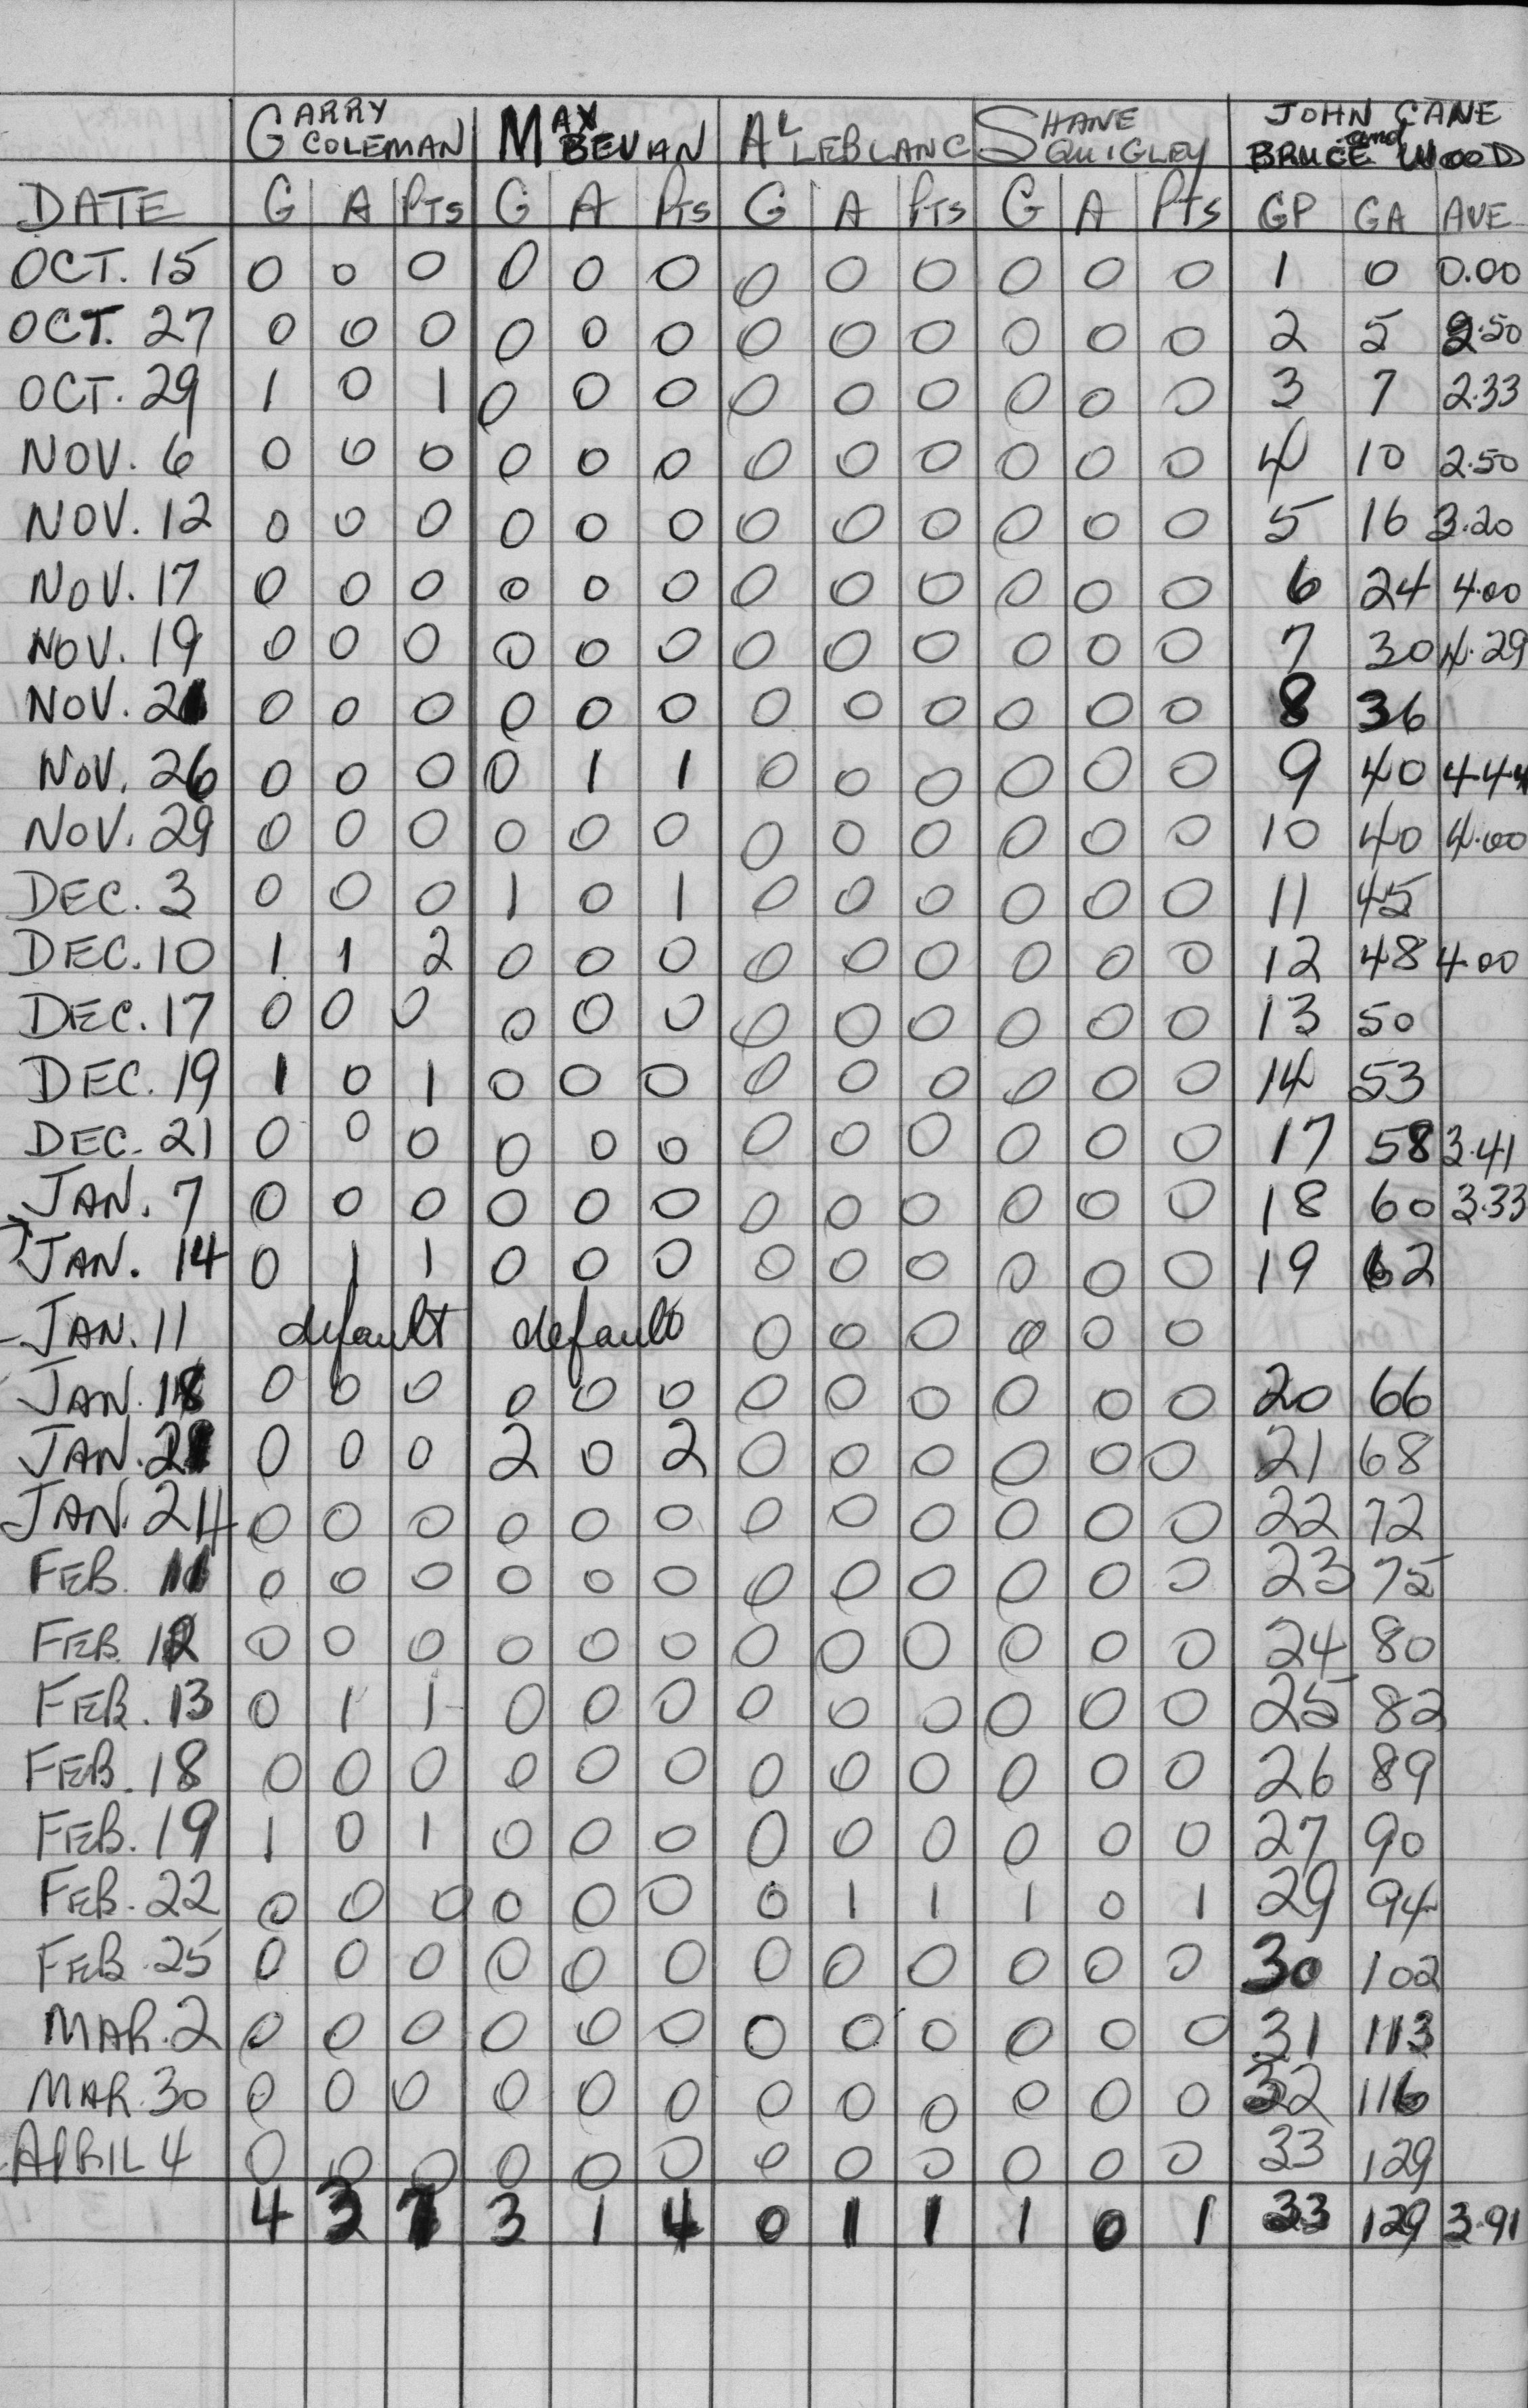 GARRY COLEMAN MAX BEVAN AL LEBLANC SHANE QUIGLEY JOHN CANE and BRUCE WOOD
DATE G A PTS G A PTS G A PTS G A PTS GP GA AVE
OCT. 15 0 0 0 0 0 0 0 0 0 0 0 0 1 0 0.00
OCT. 27 0 0 0 0 0 0 0 0 0 0 0 0 2 5 2.50
OCT. 29 1 0 1 0 0 0 0 0 0 0 0 0 3 7 2.33
NOV. 6 0 0 0 0 0 0 0 0 0 0 0 0 4 10 2.50
NOV. 12 0 0 0 0 0 0 0 0 0 0 0 0 5 16 3.20
NOV. 17 0 0 0 0 0 0 0 0 0 0 0 0 6 24 4.00
NOV. 19 0 0 0 0 0 0 0 0 0 0 0 0 7 30 4.29
NOV. 21 0 0 0 0 0 0 0 0 0 0 0 0 8 36
NOV. 26 0 0 0 0 1 1 0 0 0 0 0 0 9 40 4.44
NOV. 29 0 0 0 0 0 0 0 0 0 0 0 0 10 40 4.00
DEC. 3 0 0 0 1 0 1 0 0 0 0 0 0 11 45
DEC. 10 1 1 2 0 0 0 0 0 0 0 0 0 12 48 4.00
DEC. 17 0 0 0 0 0 0 0 0 0 0 0 0 13 50
DEC. 19 1 0 1 0 0 0 0 0 0 0 0 0 14 53
DEC. 21 0 0 0 0 0 0 0 0 0 0 0 0 17 58 3.41
JAN. 7 0 0 0 0 0 0 0 0 0 0 0 0 18 60 3.33
JAN. 14 0 1 1 0 0 0 0 0 0 0 0 0 19 62
JAN. 11 default default 0 0 0 0 0 0
JAN. 18 0 0 0 0 0 0 0 0 0 0 0 0 20 66
JAN. 21 0 0 0 2 0 2 0 0 0 0 0 0 21 68
JAN. 24 0 0 0 0 0 0 0 0 0 0 0 0 22 72
FEB. 11 0 0 0 0 0 0 0 0 0 0 0 0 23 75
FEB. 12 0 0 0 0 0 0 0 0 0 0 0 0 24 80
FEB. 13 0 1 1 0 0 0 0 0 0 0 0 0 25 82
FEB. 18 0 0 0 0 0 0 0 0 0 0 0 0 26 89
FEB. 19 1 0 1 0 0 0 0 0 0 0 0 0 27 90
FEB. 22 0 0 0 0 0 0 0 1 1 1 0 1 29 94
FEB. 25 0 0 0 0 0 0 0 0 0 0 0 0 30 102
MAR. 2 0 0 0 0 0 0 0 0 0 0 0 0 31 113
MAR. 30 0 0 0 0 0 0 0 0 0 0 0 0 32 116
APRIL 4 0 0 0 0 0 0 0 0 0 0 0 0 33 129
4 3 7 3 1 4 0 1 1 1 0 1 33 129 3.91